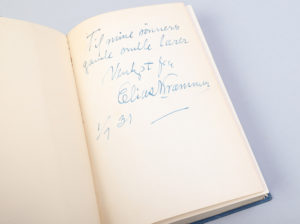 Til mine sönners
gamle snille lærer
Venligst fra
Elias Kræmmer
1/9 31